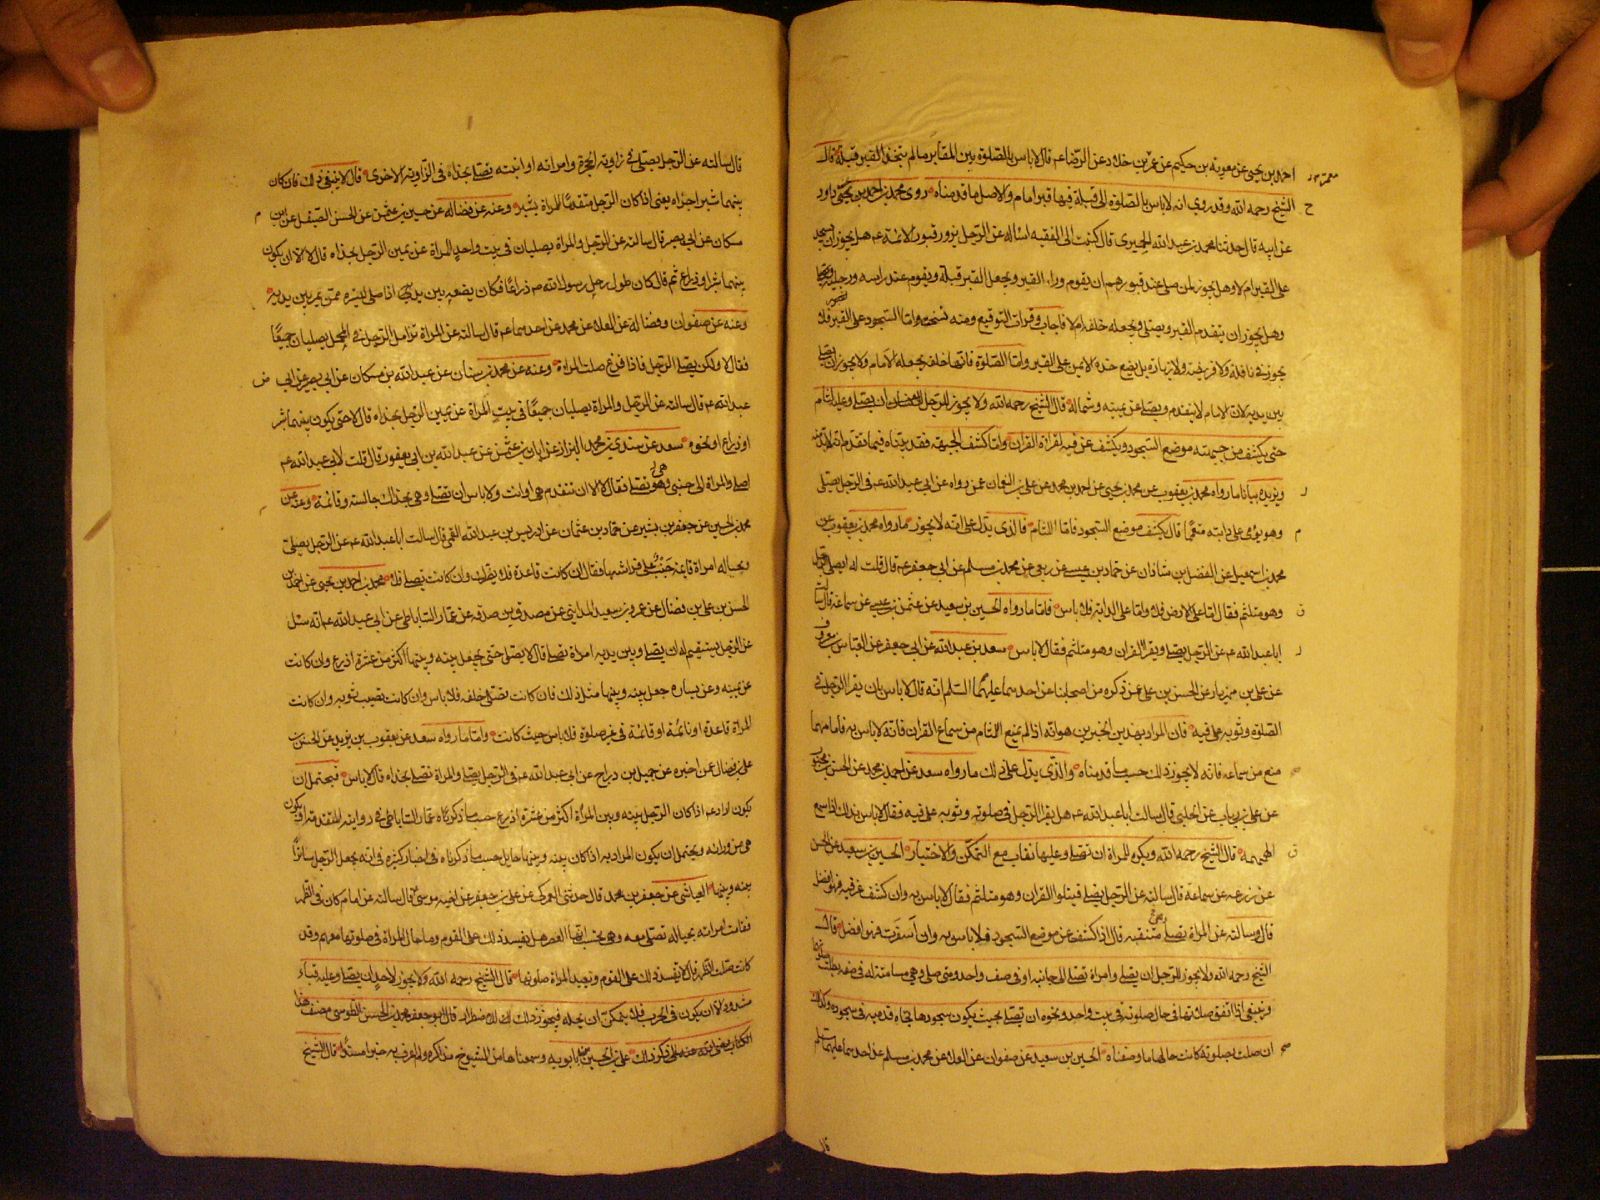 احمد بن يحيى عن معوية بن حكيم عن معمر بن خلاد عن الرضا ع قال لا باس بالصلوة بين المقابر ما لم يتخذ القبر قبلة قال
الشيخ رحمه الله وقد روي انه لا باس بالصلوة الى قبلة فيها قبر امام والاصل ما قدمناه روى محمد بن احمد بن داود
عن ابيه قال حدثنا محمد بن عبد الله الحميرى قال كتبت الى الفقيه اساله عن الرجل يزور قبور الائمة ع هل يجوز ان يسجد
على القبر ام لا وهل يجوز لمن صلى عند قبورهم ان يقوم وراء القبر ويجعل القبر قبلة ويقوم عند راسه ورجليه
وهل يجوز ان يتقدم القبر ويصلى ويجعله خلفه ام لا فاجاب وقرات التوقيع ومنه نسخت واما السجود على القبر فلا
يجوز في نافلة ولا فريضة ولا زيارة بل يضع خده الايمن على القبر واما الصلوة فانها خلفه يجعله الامام ولا يجوز ان يصلى
بين يديه لان الامام لا يتقدم ويصلى عن يمينه وشماله قال الشيخ رحمه الله ولا يجوز للرجل ان يصلى وعليه لثام
حتى يكشف من جبهته موضع السجود ويكشف عن فيه لقراءة القران واما كشف الجبهة فقد بيناه فيما تقدم
ويزيده بيانا ما رواه محمد بن يعقوب عن محمد بن يحيى عن احمد بن محمد عن علي بن النعمان عن رواه عن ابي عبد الله ع في الرجل يصلى
وهو يومى على دابته متعمما قال يكشف موضع السجود فاما اللثام فالذى يدل على انه لا يجوز ما رواه محمد بن يعقوب عن
محمد بن اسمعيل عن الفضل بن شاذان عن حماد بن عيسى عن ربعى عن محمد بن مسلم عن ابي جعفر ع قال قلت له ايصلى الرجل
وهو متلثم فقال اما على الارض فلا واما على الدابة فلا باس فاما ما رواه الحسين بن سعيد عن عثمن بن عيسى عن سماعة قال سالت
ابا عبد الله ع عن الرجل يصلى ويقرا القران وهو متلثم فقال لا باس سعد بن عبد الله عن ابي جعفر عن العباس بن معروف
عن علي بن مهزيار عن الحسن بن علي عن ذكره من اصحابنا عن احدهما عليهما السلم انه قال لا باس بان يقرا الرجل في
الصلوة وثوبه على فيه فان المراد بهذين الخبرين هو انه اذا لم يمنع اللثام من سماع القران فانه لا باس به فاما مهما
منع من سماعه فانه لا يجوز ذلك حسب ما قدمناه والذى يدل على ذلك ما رواه سعد عن احمد بن محمد عن الحسن بن محبوب
عن علي بن رياب عن الحلبى قال سالت ابا عبد الله ع هل يقرا الرجل في صلوته وثوبه على فيه فقال لا باس بذلك اذا سمع
الهمهمة قال الشيخ رحمه الله ويكره للمراة ان تصلى وعليها نقاب مع التمكن والاختيار الحسين بن سعيد عن الحسن
عن زرعة عن سماعة قال سالته عن الرجل يصلى فيتلوا القران وهو متلثم فقال لا باس به وان كشف عن فيه فهو افضل
قال وسالته عن المراة تصلى متنقبة قال اذا كشفت عن موضع السجود فلا باس به وان اسفرت فهو افضل قال
الشيخ رحمه الله ولا يجوز للرجل ان يصلى وامراة تصلى الى جانبه او في صف واحد ومتى صلى وهي مسامتة له في صفه بطلت صلوتهما
وينبغى اذا اتفق صلاتها في حال صلوته في بيت واحد ونحوه ان تصلى بحيث يكون سجودها تجاه قدميه في سجوده وكذلك
ان صلت بصلوته كانت حالها ما وصفناه الحسين بن سعيد عن صفوان عن العلا عن محمد بن مسلم عن احدهما عليهما السلم
قال سالته عن الرجل يصلى في زاوية الحجرة وامراته او ابنته تصلى بحذاه في الزاوية الاخرى قال لا ينبغى ذلك فان كان
بينهما شبر اجزاه يعنى اذا كان الرجل متقدما للمراة بشبر وعنه عن فضالة عن حسين بن عثمن عن الحسن الصيقل عن ابن
مسكان عن ابي بصير قال سالته عن الرجل والمراة يصليان في بيت واحد المراة عن يمين الرجل بحذاه قال لا الا ان يكون
بينهما شبر او ذراع ثم قال كان طول رحل رسول الله ص ذراعا فكان يضعه بين يديه اذا صلى ليستره ممن يمر بين يديه
وعنه عن صفوان وفضالة عن العلا عن محمد عن احدهما ع قال سالته عن المراة تزامل الرجل في المحمل يصليان جميعا
فقال لا ولكن يصلى الرجل فاذا فرغ صلت المراة وعنه عن محمد بن سنان عن عبد الله بن مسكان عن ابي بصير عن ابي
عبد الله ع قال سالته عن الرجل والمراة يصليان جميعا في بيت المراة عن يمين الرجل بحذاه قال لا حتى يكون بينهما شبر
او ذراع او نحوه سعد عن سندى بن محمد البزاز عن ابان بن عثمن عن عبد الله بن ابي يعفور قال قلت لابي عبد الله ع
اصلى والمراة الى جنبى وهى تصلى فقال لا الا ان تتقدم هى او انت ولا باس ان تصلى وهى بحذاك جالسة وقائمة وعنه عن
محمد بن الحسين عن جعفر بن بشير عن حماد بن عثمان عن ادريس بن عبد الله القمى قال سالت ابا عبد الله ع عن الرجل يصلى
وبحياله امراة قائمة جنب على فراشها فقال ان كانت قاعدة فلا يضرك وان كانت تصلى فلا محمد بن احمد بن يحيى عن احمد بن
الحسن بن علي بن فضال عن عمرو بن سعيد المدايني عن مصدق بن صدقة عن عمار الساباطى عن ابي عبد الله ع انه سئل
عن الرجل يستقيم له ان يصلى وبين يديه امراة تصلى قال لا يصلى حتى يجعل بينه وبينها اكثر من عشرة اذرع وان كانت
عن يمينه وعن يساره جعل بينه وبينها مثل ذلك فان كانت تصلى خلفه فلا باس وان كانت تصيب ثوبه وان كانت
المراة قاعدة او نائمة او قائمة في غير صلوة فلا باس حيث كانت واما ما رواه سعد عن يعقوب بن يزيد عن الحسن بن
علي بن فضال عن اخبره عن جميل بن دراج عن ابي عبد الله ع في الرجل يصلى والمراة تصلى بحذاه قال لا باس فيحتمل ان
يكون اراد ع اذا كان الرجل بينه وبين المراة اكثر من عشرة اذرع حسب ما ذكرناه عمار الساباطى في روايته المتقدمة او يكون
هى من ورائه ويحتمل ان يكون المراد به اذا كان بينه وبينها حايل حسب ما ذكرناه في اخبار كثيرة في انه يجعل الرجل ساترا
بينه وبينها العياشى عن جعفر بن محمد قال حدثنى العمركى عن علي بن جعفر عن اخيه موسى ع قال سالته عن امام كان في الظهر
فقامت امراته بحياله تصلى معه وهى تحسب انها العصر هل يفسد ذلك على القوم وما حال المراة في صلوتها معهم وقد
كانت صلت الظهر قال لا يفسد ذلك على القوم وتعيد المراة صلوتها قال الشيخ رحمه الله ولا يجوز لاحد ان يصلى وعليه قباء
مشدود الا ان يكون في الحرب فلا يتمكن ان يحله فيجوز ذلك له للاضطرار قال ابو جعفر محمد بن الحسن الطوسى مصنف هذا
الكتاب رضى الله عنه ذكر ذلك علي بن الحسين بن بابويه وسمعناها من الشيوخ مذاكرة ولم اعرف به خبرا مسندا قال الشيخ